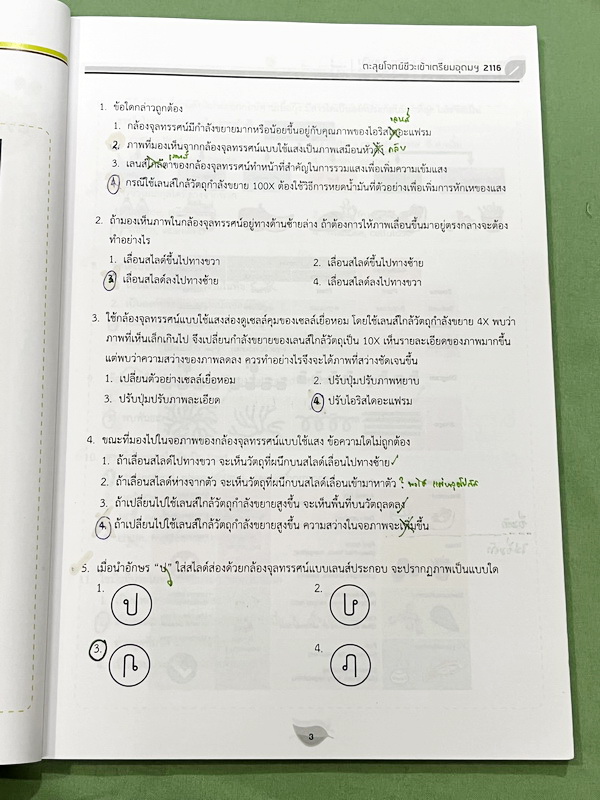 ตะลุยโจทย์ชีวะเข้าเตรียมอุดมฯ 2116
1. ข้อใดกล่าวถูกต้อง
เลนส์
1. กล้องจุลทรรศน์มีกำลังขยายมากหรือน้อยขึ้นอยู่กับคุณภาพของไอริสไดอะแฟรม
2. ภาพที่มองเห็นจากกล้องจุลทรรศน์แบบใช้แสงเป็นภาพเสมือนหัวตั้ง กลับ
3. เลนส์ใกล้ตาของกล้องจุลทรรศน์ทำหน้าที่สำคัญในการรวมแสงเพื่อเพิ่มความเข้มแสง
4. กรณีใช้เลนส์ใกล้วัตถุกำลังขยาย 100X ต้องใช้วิธีการหยดน้ำมันที่ตัวอย่างเพื่อเพิ่มการหักเหของแสง
2. ถ้ามองเห็นภาพในกล้องจุลทรรศน์อยู่ทางด้านซ้ายล่าง ถ้าต้องการให้ภาพเลื่อนขึ้นมาอยู่ตรงกลางจะต้อง
ทำอย่างไร
1. เลื่อนสไลด์ขึ้นไปทางขวา 2. เลื่อนสไลด์ขึ้นไปทางซ้าย
3. เลื่อนสไลด์ลงไปทางซ้าย 4. เลื่อนสไลด์ลงไปทางขวา
3. ใช้กล้องจุลทรรศน์แบบใช้แสงส่องดูเซลล์คุมของเซลล์เยื่อหอม โดยใช้เลนส์ใกล้วัตถุกำลังขยาย 4X พบว่า
ภาพที่เห็นเล็กเกินไป จึงเปลี่ยนกำลังขยายของเลนส์ใกล้วัตถุเป็น 10X เห็นรายละเอียดของภาพมากขึ้น
แต่พบว่าความสว่างของภาพลดลง ควรทำอย่างไรจึงจะได้ภาพที่สว่างชัดเจนขึ้น
1. เปลี่ยนตัวอย่างเซลล์เยื่อหอม 2. ปรับปุ่มปรับภาพหยาบ
3. ปรับปุ่มปรับภาพละเอียด 4. ปรับไอริสไดอะแฟรม
4. ขณะที่มองไปในจอภาพของกล้องจุลทรรศน์แบบใช้แสง ข้อความใดไม่ถูกต้อง
1. ถ้าเลื่อนสไลด์ไปทางขวา จะเห็นวัตถุที่ผนึกบนสไลด์เลื่อนไปทางซ้าย
2. ถ้าเลื่อนสไลด์ห่างจากตัว จะเห็นวัตถุที่ผนึกบนสไลด์เลื่อนเข้ามาหาตัว ?
3. ถ้าเปลี่ยนไปใช้เลนส์ใกล้วัตถุกำลังขยายสูงขึ้น จะเห็นพื้นที่บนวัตถุลดลง
4. ถ้าเปลี่ยนไปใช้เลนส์ใกล้วัตถุกำลังขยายสูงขึ้น ความสว่างในจอภาพจะเพิ่มขึ้น
5. เมื่อนำอักษร “ ” ใส่สไลด์ส่องด้วยกล้องจุลทรรศน์แบบเลนส์ประกอบ จะปรากฏภาพเป็นแบบใด
1. ป 2.
3. 4.
3